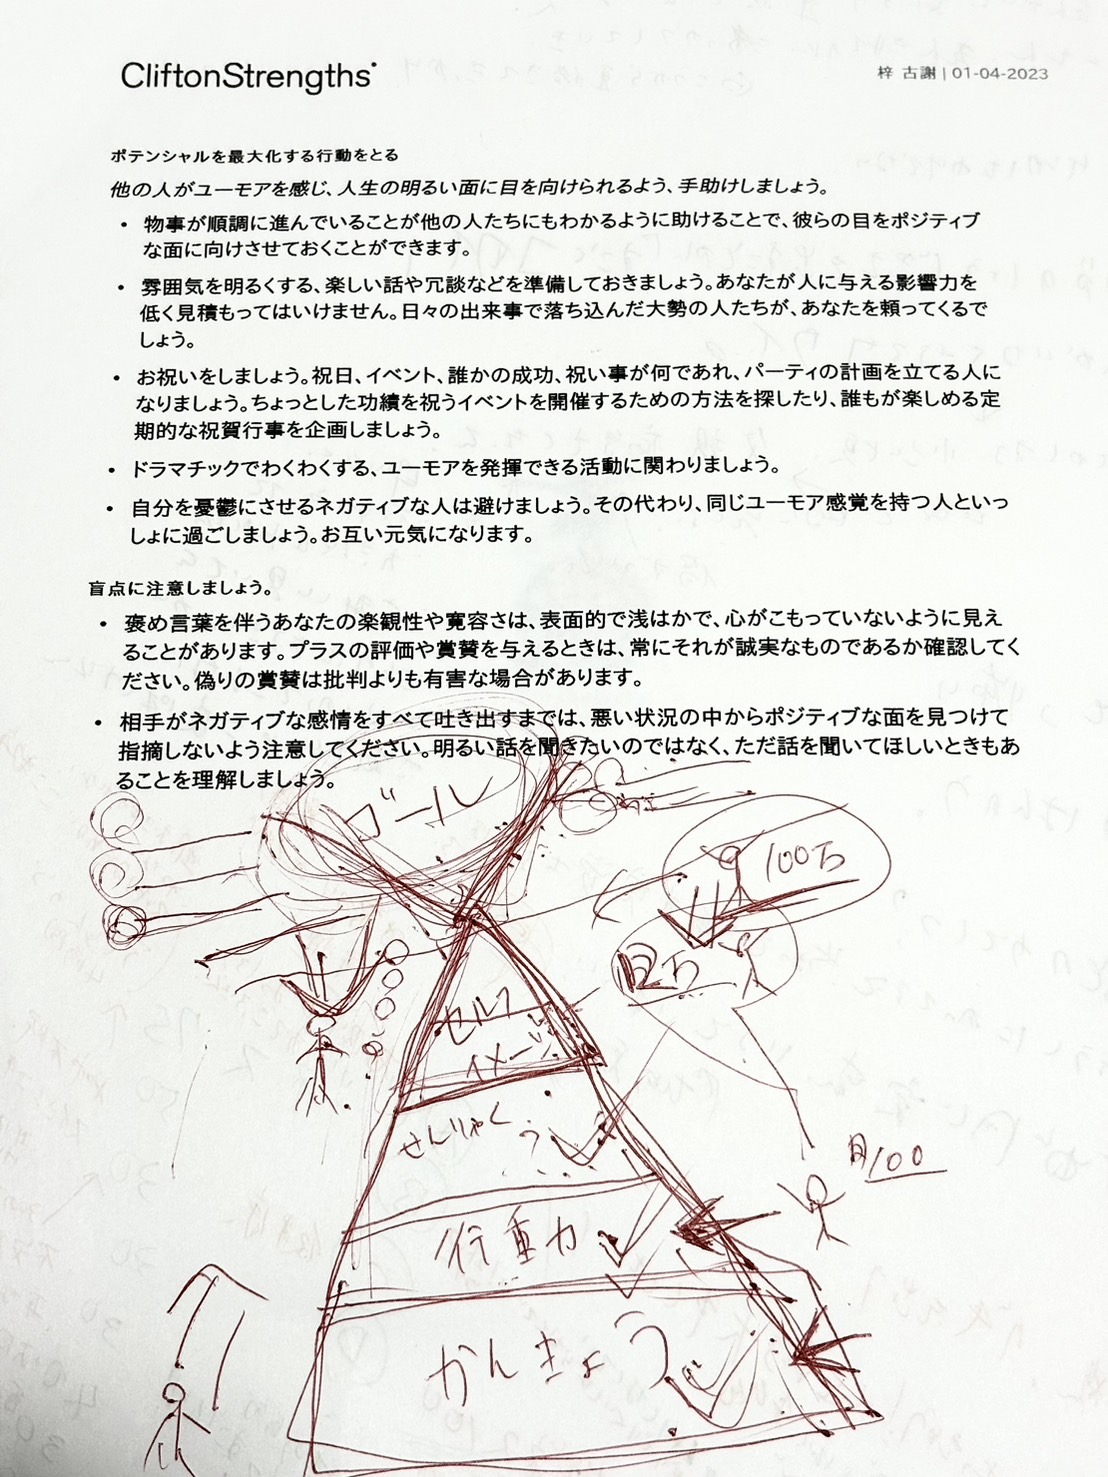 CliftonStrengths®
梓 古謝 | 01-04-2023
ポテンシャルを最大化する行動をとる
他の人がユーモアを感じ、人生の明るい面に目を向けられるよう、手助けしましょう。
• 物事が順調に進んでいることが他の人たちにもわかるように助けることで、彼らの目をポジティブ
な面に向けさせておくことができます。
• 雰囲気を明るくする、楽しい話や冗談などを準備しておきましょう。あなたが人に与える影響力を
低く見積もってはいけません。日々の出来事で落ち込んだ大勢の人たちが、あなたを頼ってくるで
しょう。
• お祝いをしましょう。祝日、イベント、誰かの成功、祝い事が何であれ、パーティの計画を立てる人に
なりましょう。ちょっとした功績を祝うイベントを開催するための方法を探したり、誰もが楽しめる定
期的な祝賀行事を企画しましょう。
• ドラマチックでわくわくする、ユーモアを発揮できる活動に関わりましょう。
• 自分を憂鬱にさせるネガティブな人は避けましょう。その代わり、同じユーモア感覚を持つ人といっ
しょに過ごしましょう。お互い元気になります。
盲点に注意しましょう。
• 褒め言葉を伴うあなたの楽観性や寛容さは、表面的で浅はかで、心がこもっていないように見え
ることがあります。プラスの評価や賞賛を与えるときは、常にそれが誠実なものであるか確認してく
ださい。偽りの賞賛は批判よりも有害な場合があります。
• 相手がネガティブな感情をすべて吐き出すまでは、悪い状況の中からポジティブな面を見つけて
指摘しないよう注意してください。明るい話を聞きたいのではなく、ただ話を聞いてほしいときもあ
ることを理解しましょう。
ゴール
100万
セルフ
イメージ
せんりゃく
月100
行動力
かんきょう